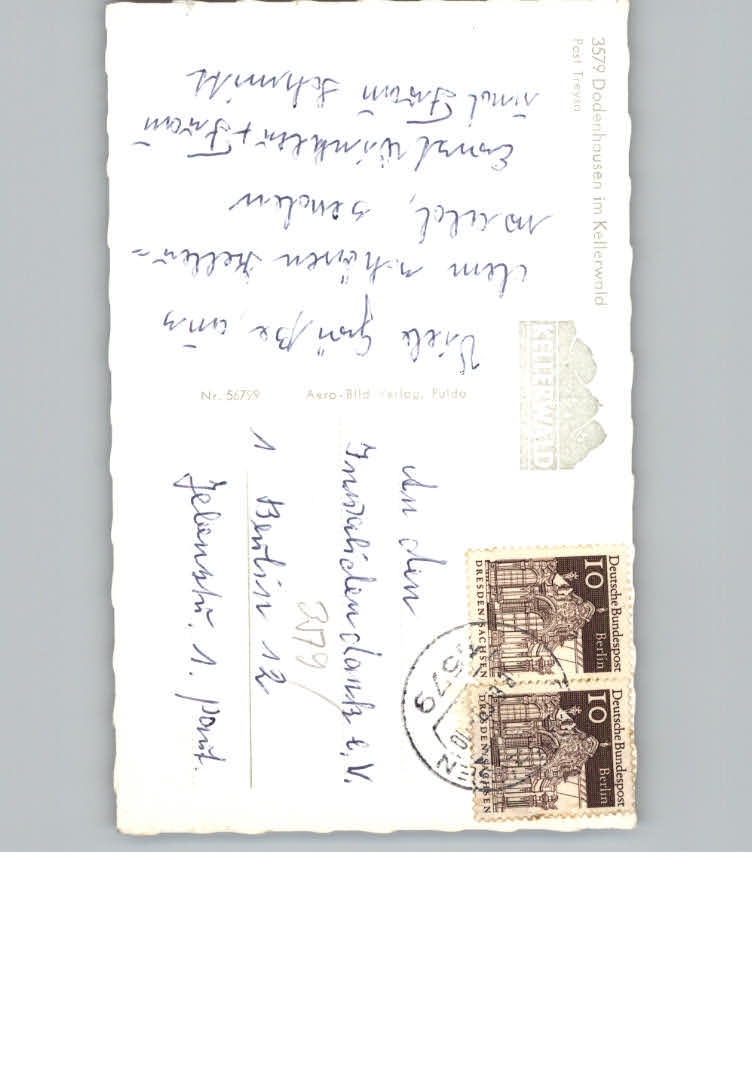 3579 Dodenhausen im Kellerwald
Post Treysa
KELLERWALD
Viele Grüße, aus
dem schönen Keller=
wald, senden
Ernst Winkler + Frau
und Frau Schmidt
Nr. 56799 Aero-Bild Verlag, Fulda
Deutsche Bundespost
Berlin
10
DRESDEN/SACHSEN
Deutsche Bundespost
Berlin
10
DRESDEN/SACHSEN
3579
An den
Invalidendank e.V.
3579
1 Berlin 12
Jebensstr. 1.